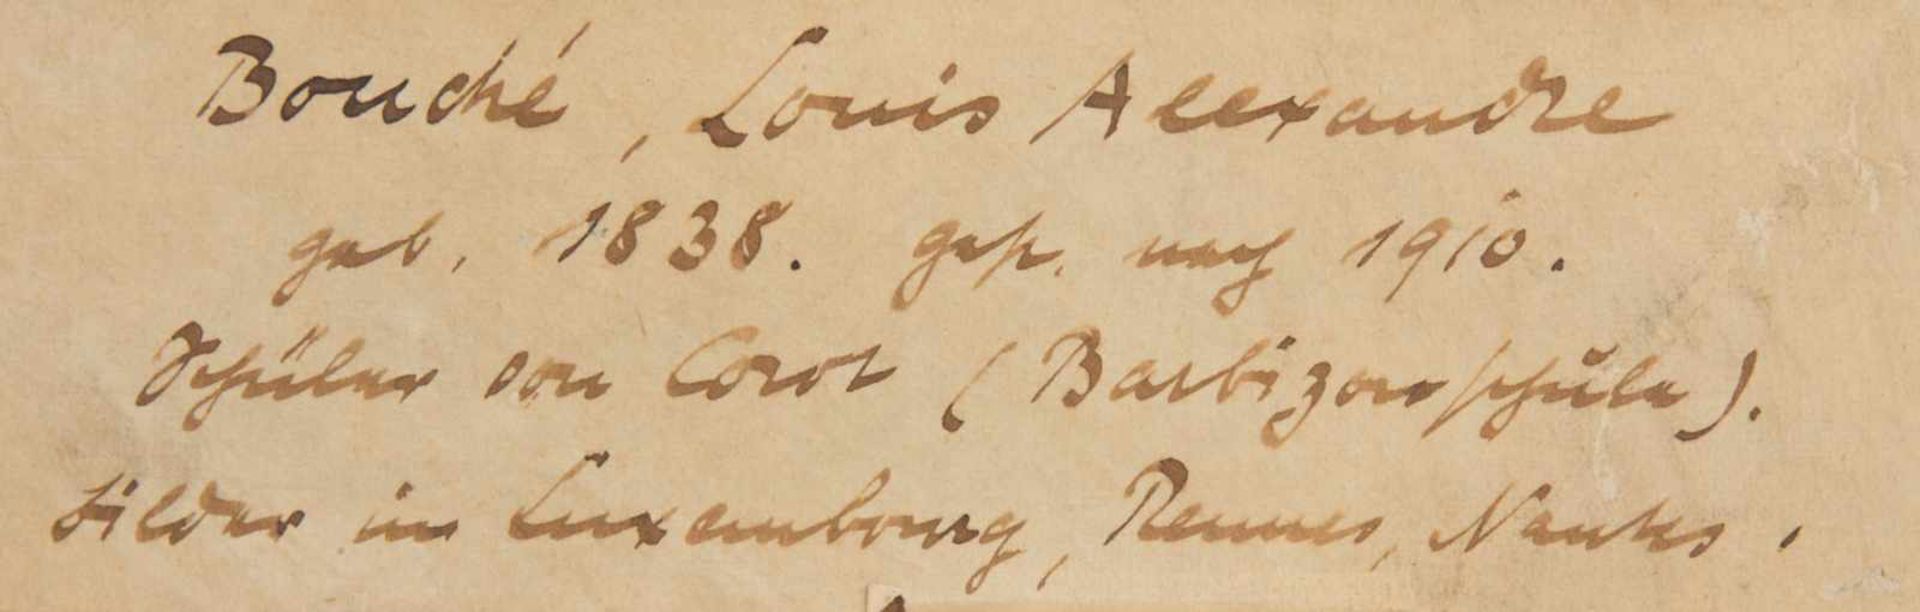 Bouché, Louis Alexandre
geb. 1838. gest. nach 1910.
Schüler von Corot (Barbizonschule).
Bilder im Luxembourg, Rennes, Nantes.